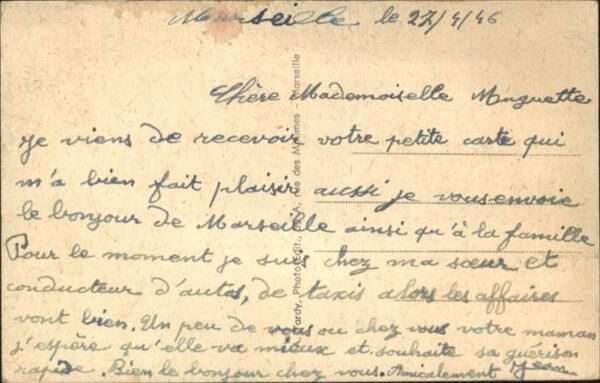 Marseille le 27/4/46
Chère Mademoiselle Muguette
Je viens de recevoir votre petite carte qui
m'a bien fait plaisir aussi je vous envoie
le bonjour de Marseille ainsi qu'à la famille
Pour le moment je suis chez ma sœur et
conducteur d'autos, de taxis alors les affaires
vont bien. Un peu de vous ou chez vous votre maman
j'espère qu'elle va mieux et souhaite sa guérison
rapide. Bien le bonjour chez vous. Amicalement
Tardy, Photo-Edit., des Mimes - Marseille